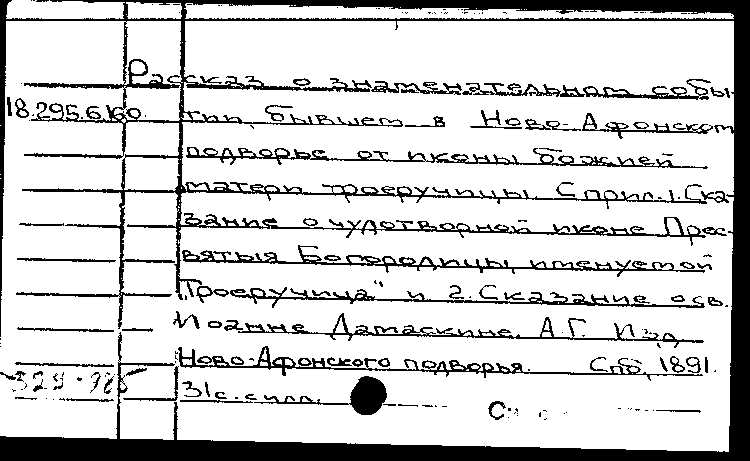 Рассказ о знаменательном собы-
18.295.6.160. тии, бывшем в Ново-Афонском
подворье от иконы божией
матери троеручицы. С прил. 1. Ска-
зание о чудотворной иконе Прес-
вятыя Богородицы, именуемой
„Троеручица" и 2. Сказание о св.
Иоанне Дамаскине. А.Г. Изд.
Ново-Афонского подворья. Спб, 1891.
31 с. с илл.